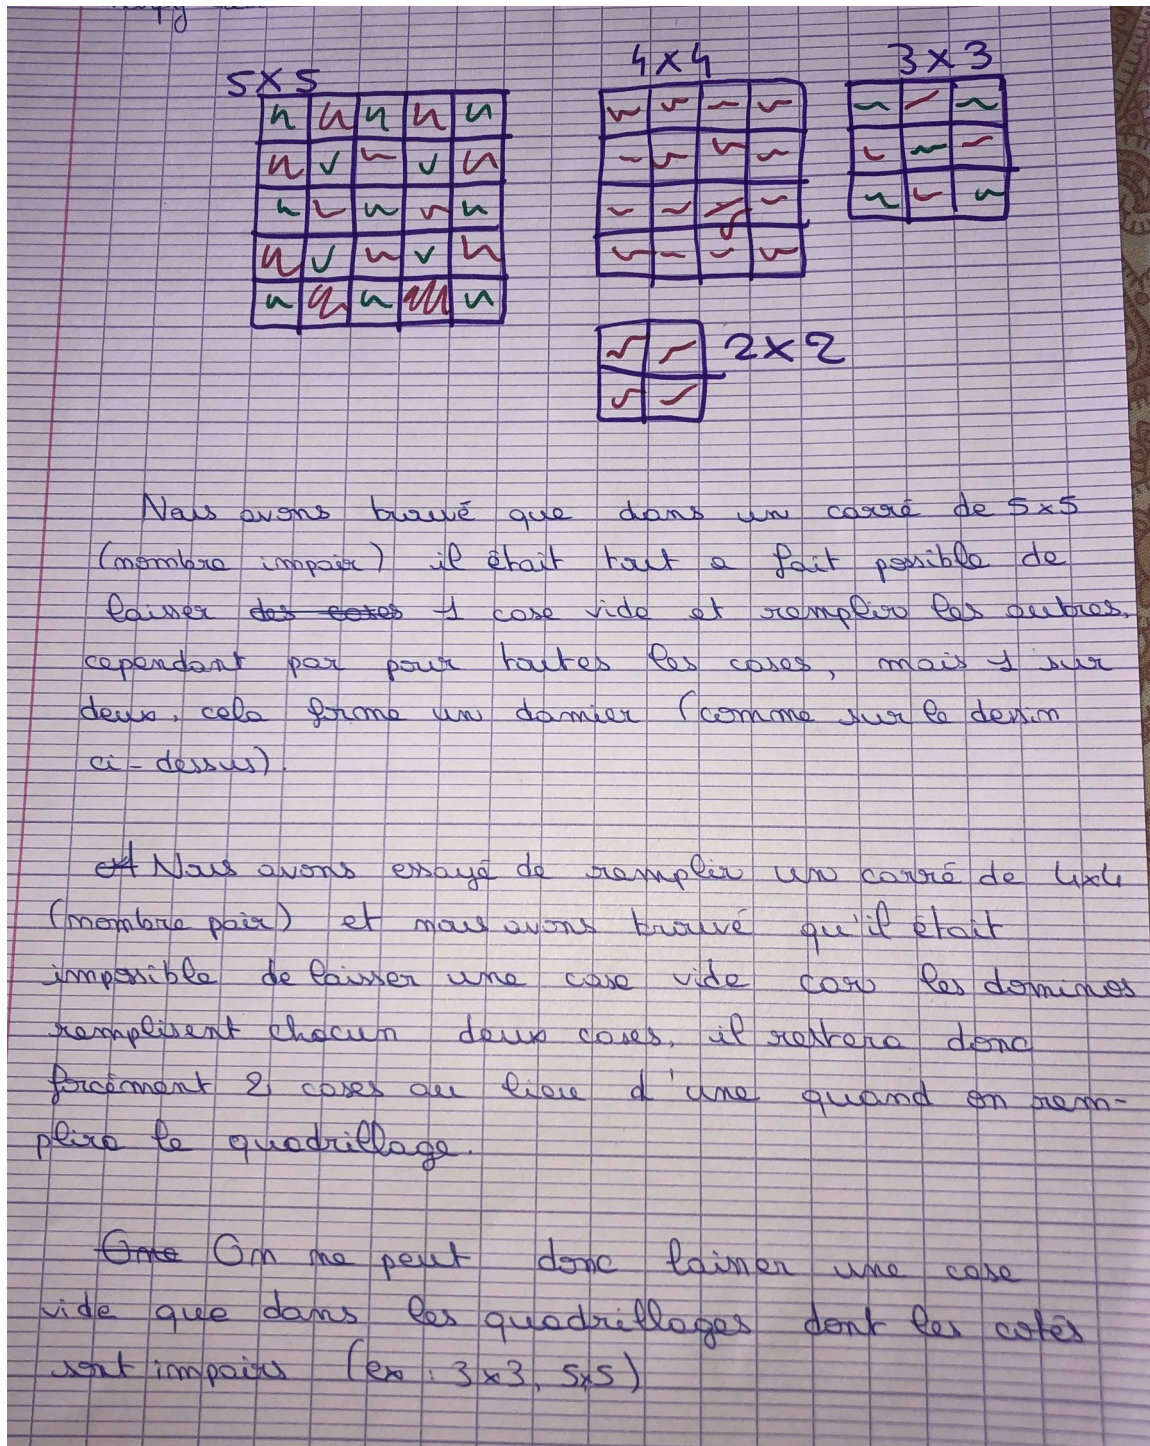 5x5
4x4
3x3
2x2
Nous avons trouvé que dans un carré de 5x5
(nombre impair) il était tout a fait possible de
laisser des cases 1 case vide et remplir les autres,
cependant par pour toutes les cases, mais 1 sur
deux, cela forme un damier (comme sur le dessin
ci-dessus).
Nous avons essayé de remplir un carré de 4x4
(nombre pair) et nous avons trouvé qu'il était
impossible de laisser une case vide car les dominos
remplisent chacun deux cases, il restera donc
forcément 2 cases au lieu d'une quand on rem-
plira le quadrillage.
On ne peut donc laisser une case
vide que dans les quadrillages dont les cotés
sont impairs (ex : 3x3, 5x5)